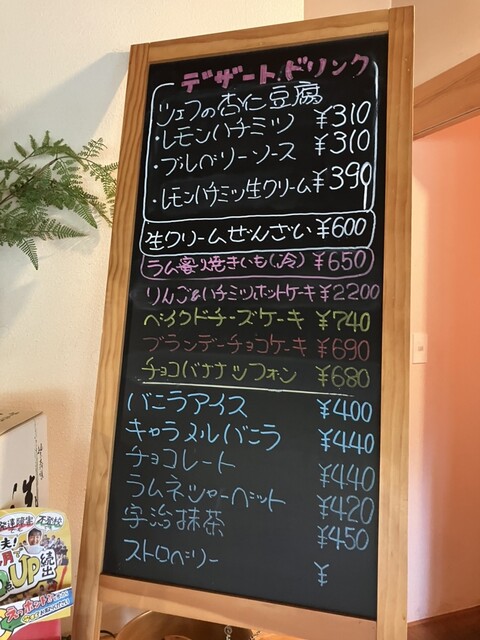 デザートドリンク
シェフの杏仁豆腐
・レモンハチミツ ¥310
・ブルベリーソース ¥310
・レモンハチミツ生クリーム ¥390
生クリームぜんざい ¥600
ラム香り焼きいも(冷) ¥650
りんご&ハチミツホットケーキ ¥2200
ベイクドチーズケーキ ¥740
ブランデーチョコケーキ ¥690
チョコバナナシフォン ¥680
バニラアイス ¥400
キャラメルバニラ ¥440
チョコレート ¥440
ラムネシャーベット ¥420
宇治抹茶 ¥450
ストロベリー ¥
不登校
UP続出